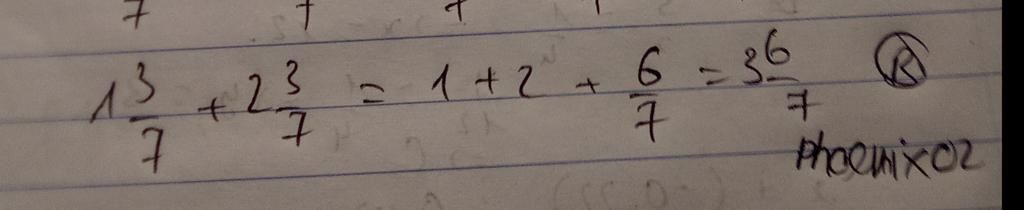 1 3/7 + 2 3/7 = 1 + 2 + 6/7 = 3 6/7 Ⓑ
phoenix02